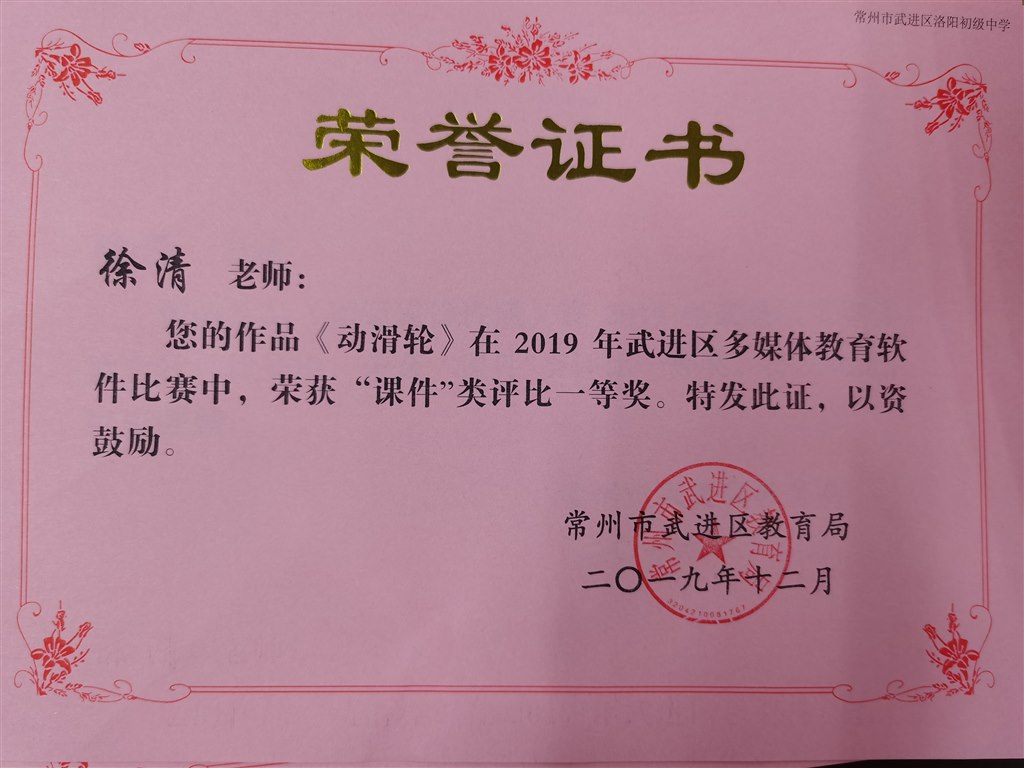 常州市武进区洛阳初级中学
荣誉证书
徐清 老师：
您的作品《动滑轮》在 2019 年武进区多媒体教育软
件比赛中，荣获“课件”类评比一等奖。特发此证，以资
鼓励。
常州市武进区教育局
常州市武进区教育局
二〇一九年十二月
3204210081761